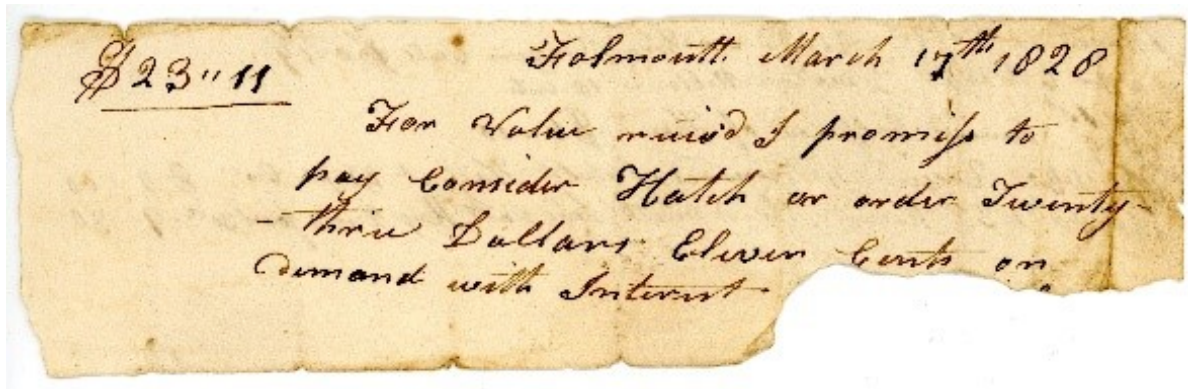 $23"11
Falmouth March 17th 1828
For Value reciod I promiss to
pay Consider Hatch or order Twenty-
-three Dollars Eleven Cents on
demand with Interest